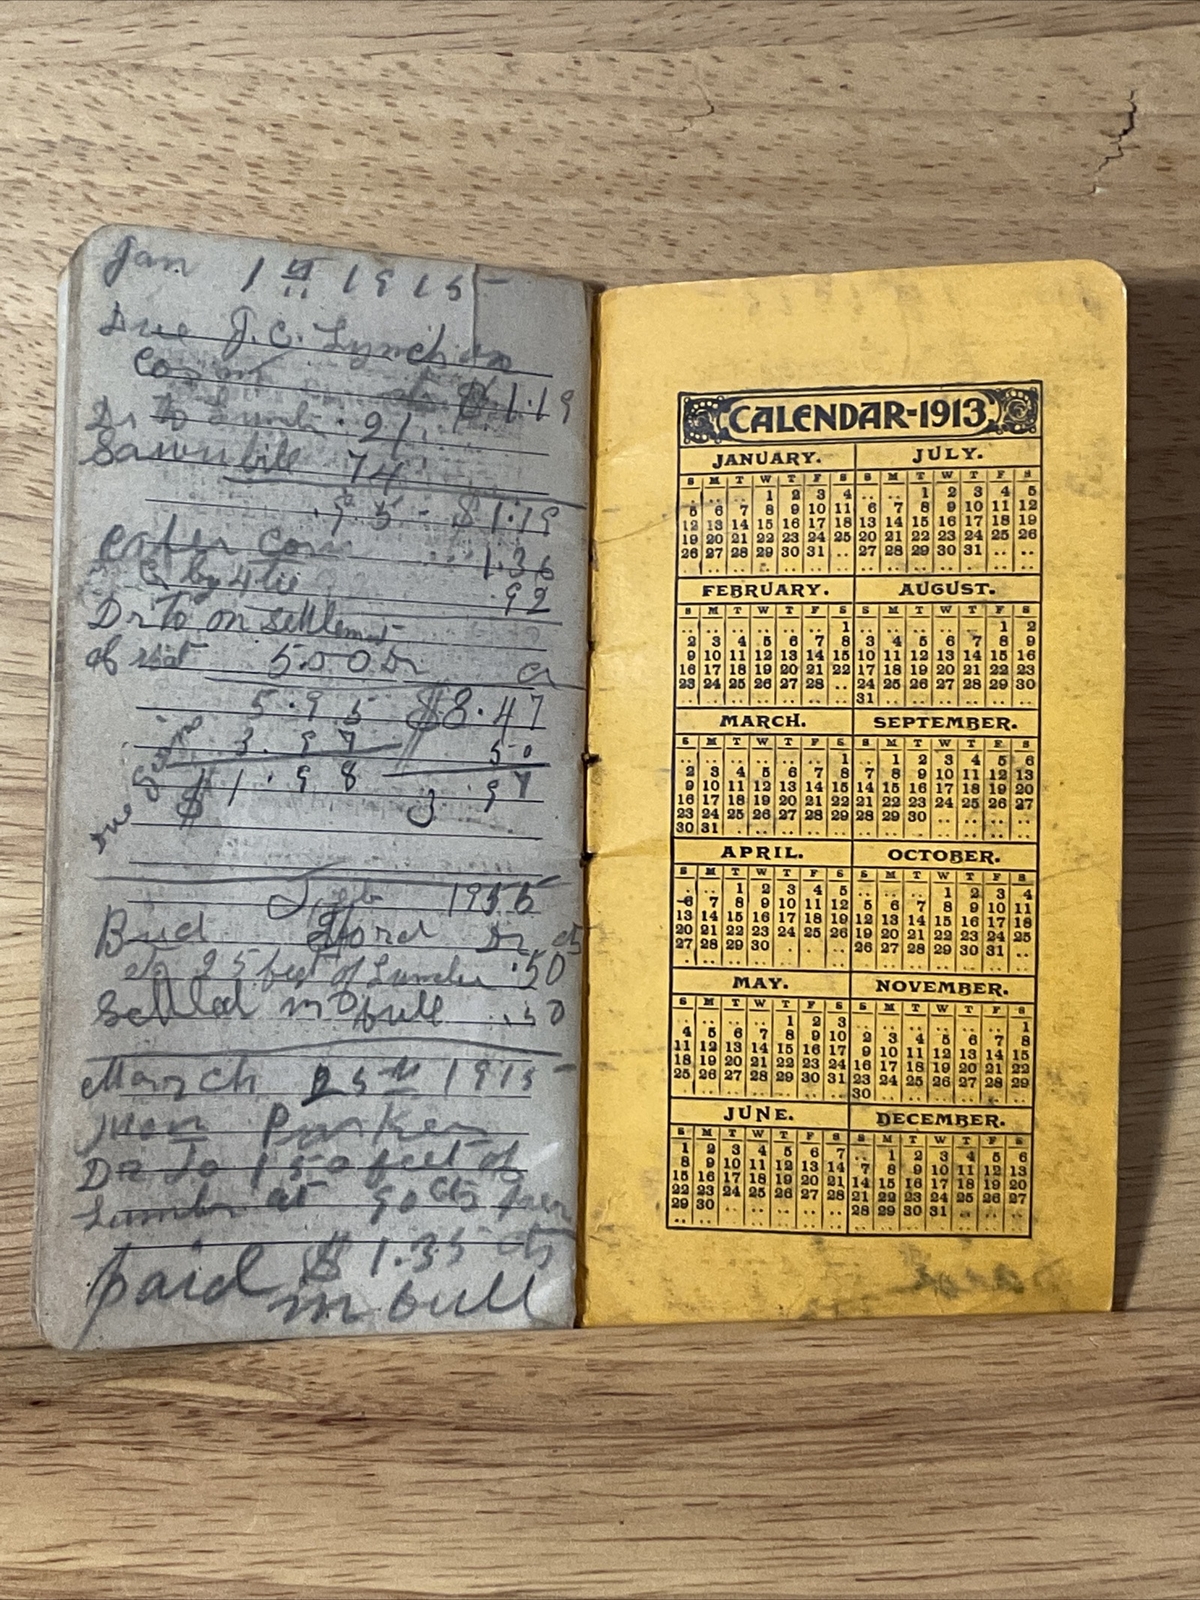 Jan 1st 1915
Due J.C. Lynch on
Corn $1.19
Dr to Lumb. .21
Sawn bill 74
.95 - $1.19
after corn 1.36
by 4 tie .92
Dr to on settlement
of 5.00 Dr Cr
5.95 $8.47
3.97 50
$1.98 3.97
Due
Feb 1915
Bud Ford Dr cts
to 25 feet of Lumber .50
Settled in full .50
March 25th 1915
Parker
Dr to 150 feet of
Lumber at 90 cts per
$1.35 cts
paid in full
CALENDAR-1913
JANUARY.
S M T W T F S
.. .. .. 1 2 3 4
5 6 7 8 9 10 11
12 13 14 15 16 17 18
19 20 21 22 23 24 25
26 27 28 29 30 31 ..
FEBRUARY.
S M T W T F S
.. .. .. .. .. .. 1
2 3 4 5 6 7 8
9 10 11 12 13 14 15
16 17 18 19 20 21 22
23 24 25 26 27 28 ..
MARCH.
S M T W T F S
.. .. .. .. .. .. 1
2 3 4 5 6 7 8
9 10 11 12 13 14 15
16 17 18 19 20 21 22
23 24 25 26 27 28 29
30 31 .. .. .. .. ..
APRIL.
S M T W T F S
.. .. 1 2 3 4 5
6 7 8 9 10 11 12
13 14 15 16 17 18 19
20 21 22 23 24 25 26
27 28 29 30 .. .. ..
MAY.
S M T W T F S
.. .. .. .. 1 2 3
4 5 6 7 8 9 10
11 12 13 14 15 16 17
18 19 20 21 22 23 24
25 26 27 28 29 30 31
JUNE.
S M T W T F S
1 2 3 4 5 6 7
8 9 10 11 12 13 14
15 16 17 18 19 20 21
22 23 24 25 26 27 28
29 30 .. .. .. .. ..
JULY.
S M T W T F S
.. .. 1 2 3 4 5
6 7 8 9 10 11 12
13 14 15 16 17 18 19
20 21 22 23 24 25 26
27 28 29 30 31 .. ..
AUGUST.
S M T W T F S
.. .. .. .. .. 1 2
3 4 5 6 7 8 9
10 11 12 13 14 15 16
17 18 19 20 21 22 23
24 25 26 27 28 29 30
31 .. .. .. .. .. ..
SEPTEMBER.
S M T W T F S
.. 1 2 3 4 5 6
7 8 9 10 11 12 13
14 15 16 17 18 19 20
21 22 23 24 25 26 27
28 29 30 .. .. .. ..
OCTOBER.
S M T W T F S
.. .. .. 1 2 3 4
5 6 7 8 9 10 11
12 13 14 15 16 17 18
19 20 21 22 23 24 25
26 27 28 29 30 31 ..
NOVEMBER.
S M T W T F S
.. .. .. .. .. .. 1
2 3 4 5 6 7 8
9 10 11 12 13 14 15
16 17 18 19 20 21 22
23 24 25 26 27 28 29
30 .. .. .. .. .. ..
DECEMBER.
S M T W T F S
.. 1 2 3 4 5 6
7 8 9 10 11 12 13
14 15 16 17 18 19 20
21 22 23 24 25 26 27
28 29 30 31 .. .. ..